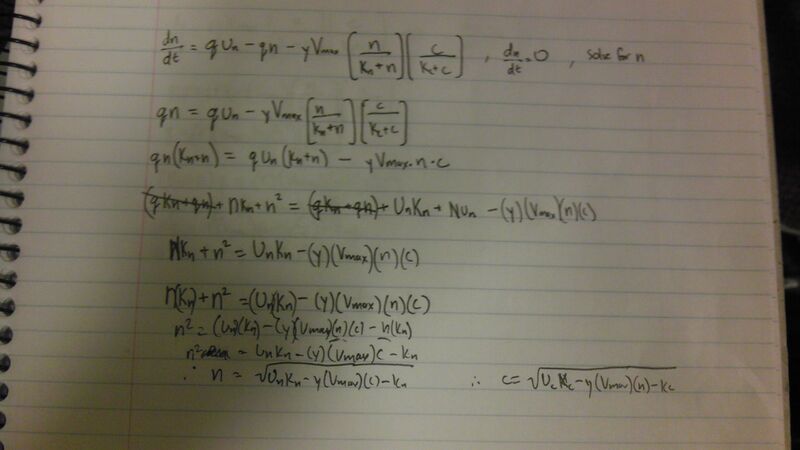 dn/dt = qUn - qn - yVmax [n/(Kn+n)] [c/(Kc+c)] , dn/dt = 0 , solve for n
qn = qUn - yVmax [n/(Kn+n)] [c/(Kc+c)]
qn(Kn+n) = qUn(Kn+n) - yVmax·n·c
(qKn+qn) + nKn + n² = (qKn+qn) + UnKn + NUn - (y)(Vmax)(n)(c)
NKn + n² = UnKn - (y)(Vmax)(n)(c)
n(Kn) + n² = (Un)(Kn) - (y)(Vmax)(n)(c)
n² = (Un)(Kn) - (y)(Vmax)(n)(c) - n(Kn)
n² = UnKn - (y)(Vmax)c - Kn
∴ n = √(UnKn - y(Vmax)(c) - Kn) ∴ c = √(UcKc - y(Vmax)(n) - Kc)